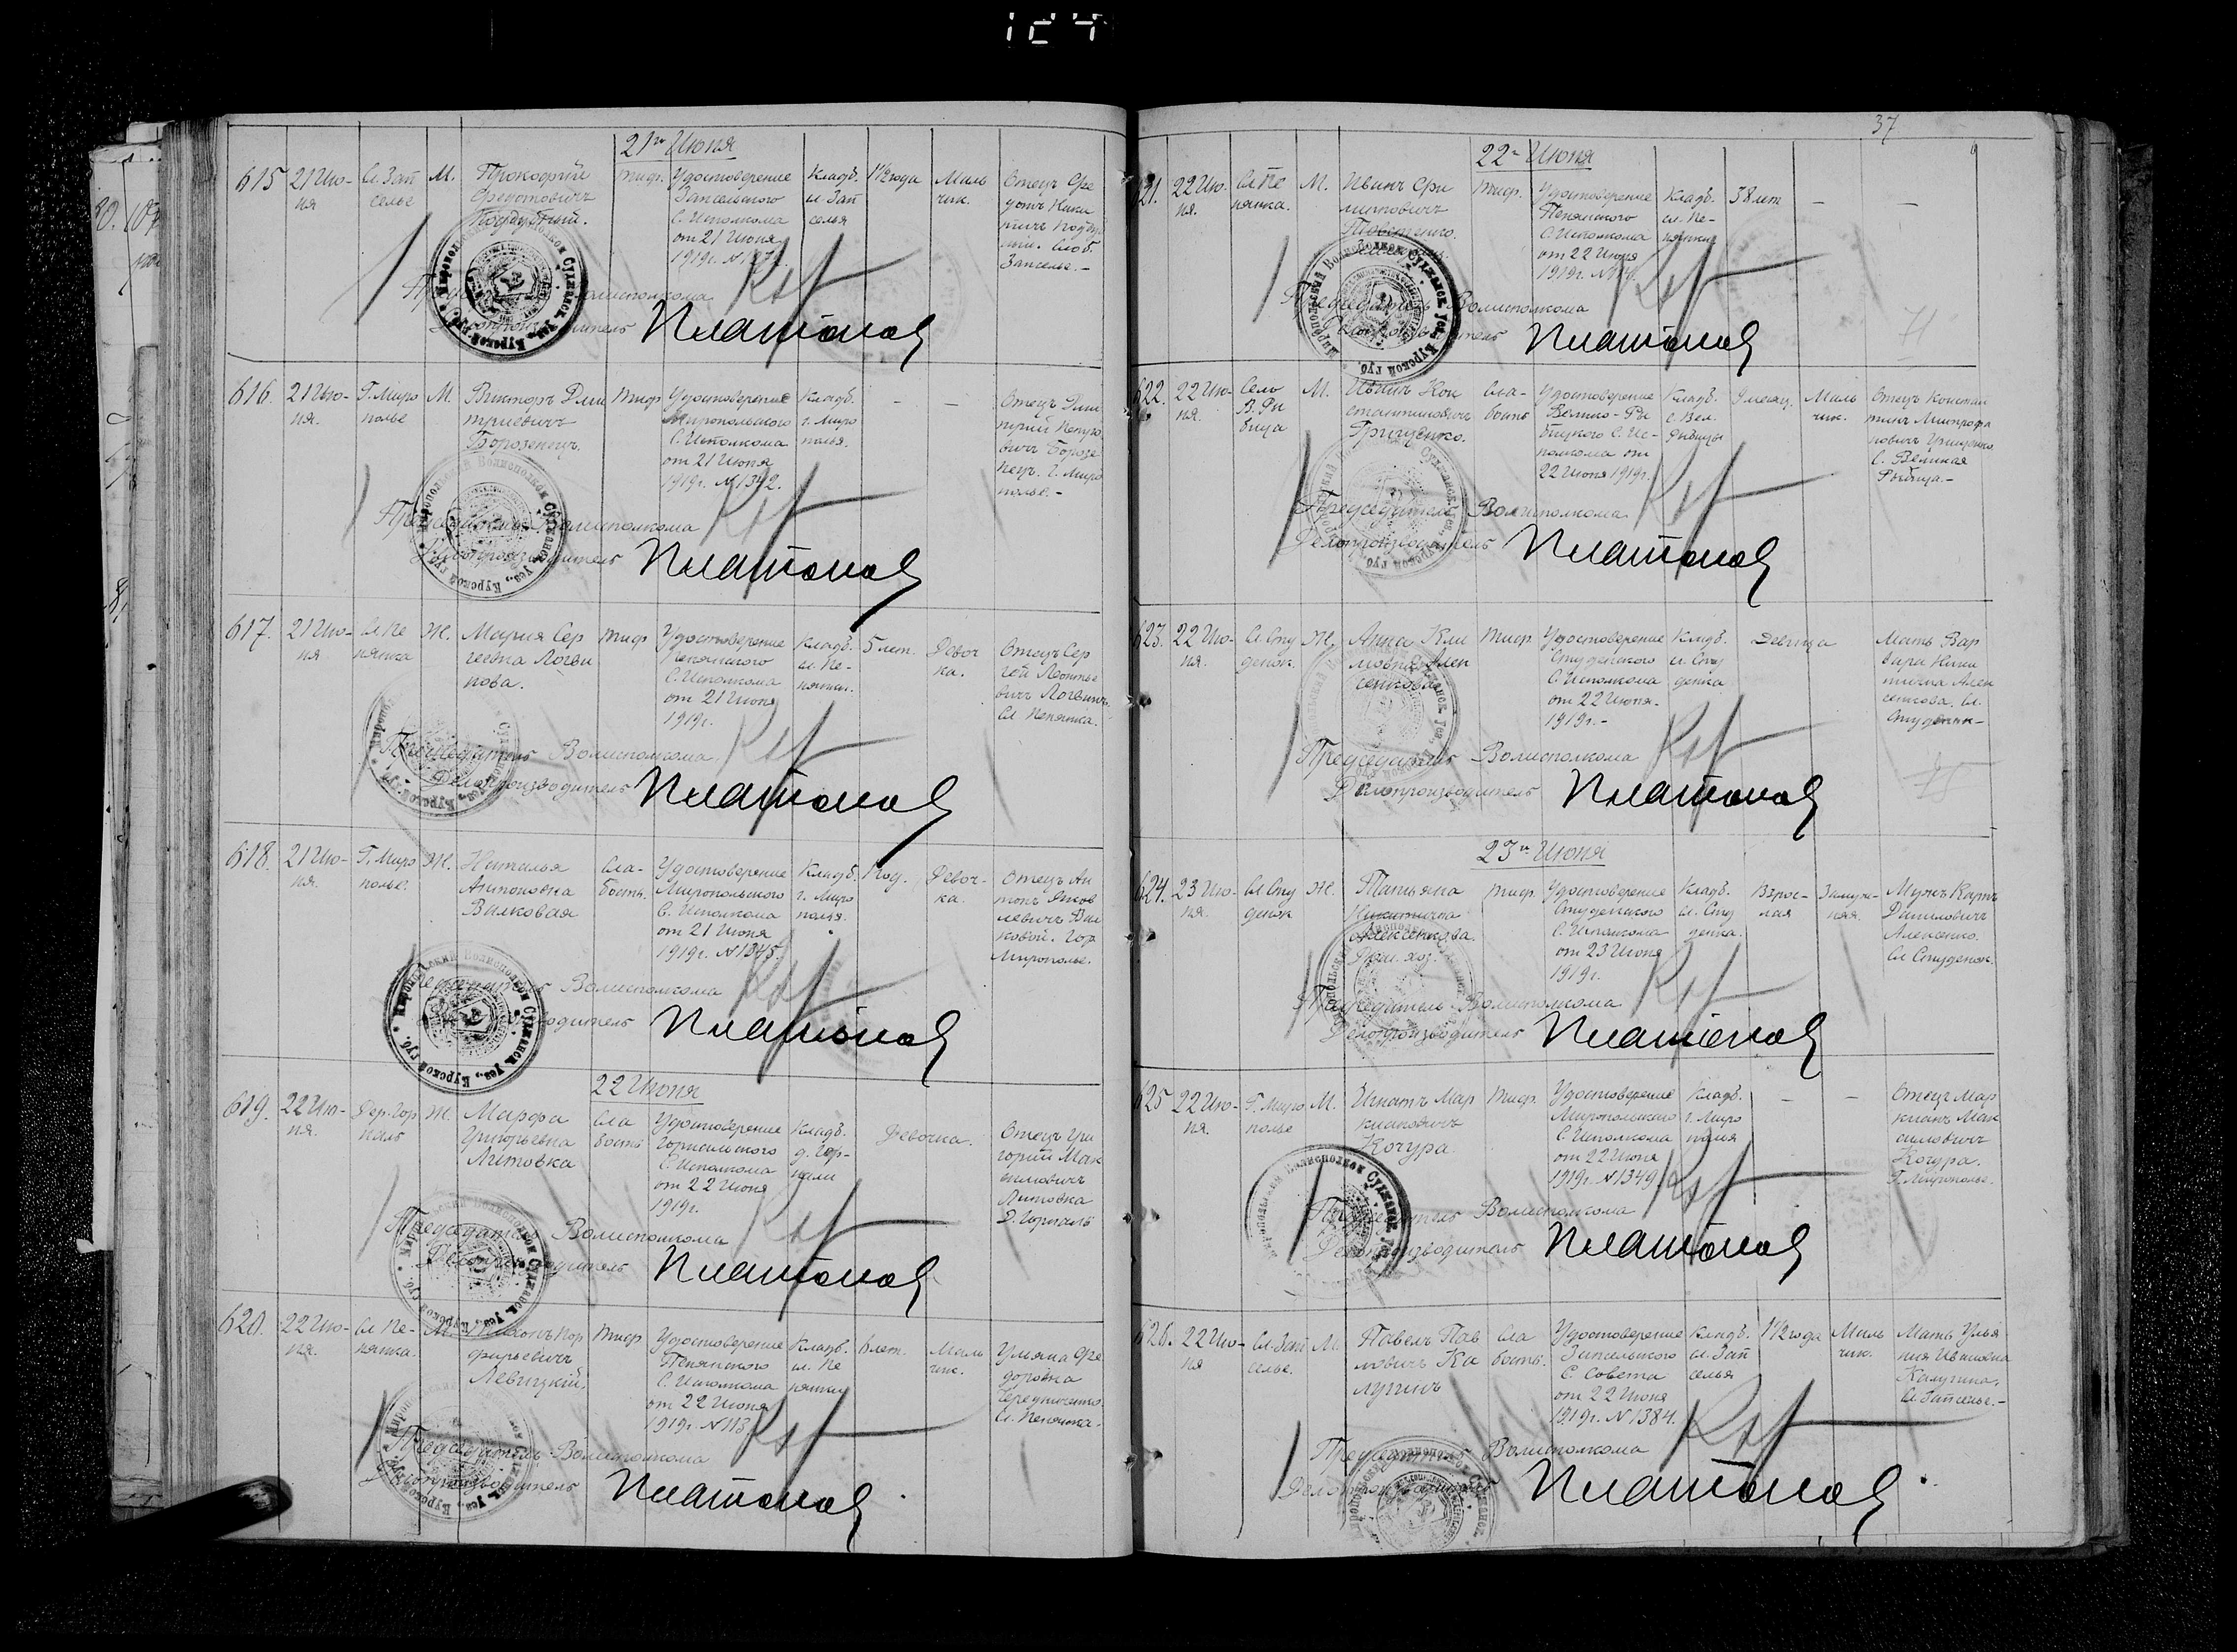 124
21го Июня
615
21 Ию-
ня
Сл. Зап
селье
М.
Прокофий
Федотовичъ
тиф.
Удостоверение
Запсельского
С. Исполкома
от 21 Июня
1919г.
Кладб.
сл Зап
селья
1 1/2 года
Маль
чик.
Отецъ Фе
Запселье.-
Волисполкома
Платонов
616.
21 Ию-
ня.
Г. Миро
полье
М.
Викторъ Дми
триевичъ
тиф
Удостоверение
Миропольского
С. Исполкома
от 21 Июня
1919г. №1342.
Кладб.
г. Миро
полья.
-
-
Отецъ Дми
трий Петро
вичъ
г. Миро
полье.-
Председатель Волисполкома
Делопроизводитель
Платонов
617.
21 Ию-
ня
Сл Пе
нянка
Ж.
Мария Сер
геевна Логви
нова.
тиф
Удостоверение
Пенянского
С. Исполкома
от 21 Июня
1919г.
Кладб.
сл. Пе-
нянки.
5 лет.
Девоч
ка.
Отецъ Сер
гей Леонтье
вичъ
Сл Пенянка.
Председатель Волисполкома
Делопроизводитель
Платонов
618.
21 Ию-
ня.
Г. Миро
полье.
Ж.
Наталья
Антоновна
Волковая
сла-
бость.
Удостоверение
Миропольского
С. Исполкома
от 21 Июня
1919г. №1345.
Кладб.
г. Миро
полья.
1 год.
Девоч-
ка.
Отецъ Ан
тонъ Яков
левичъ Вол
ковой. Гор
Мирополье.
Волисполкома
Платонов
22 Июня
619.
22 Ию-
ня.
Дер. Гор
наль
Ж.
Марфа
Григорьевна
Литовка
сла
бость
Удостоверение
Горнальского
С. Исполкома
от 22 Июня
1919г.
Кладб.
д. Гор-
нали
Девочка.
Отецъ Гри
горий Мак
симовичъ
Литовка
Д. Горналь
Председатель Волисполкома
Делопроизводитель
Платонов
620.
22 Ию-
ня.
Сл Пе-
нянка.
М.
Пор
фирьевичъ
Левицкий.
тиф
Удостоверение
Пенянского
С. Исполкома
от 22 Июня
1919г. №113
Кладб.
сл. Пе
нянки
6 лет.
Маль
чик.
Ульяна Фе
доровна
Сл. Пенянка.
Председатель Волисполкома
Делопроизводитель
Платонов
37
22го Июня
621.
22 Ию-
ня.
Сл Пе
нянка.
М.
Иванъ Фи
липповичъ
тиф.
Удостоверение
Пенянского
С. Исполкома
от 22 Июня
1919г.
Кладб.
сл. Пе-
нянки
38 лет
-
-
Председатель Волисполкома
Делопроизводитель
Платонов
622.
22 Ию-
ня.
Село
В. Ры
бица
М.
Иванъ Кон
стантиновичъ
Грищенко.
сла-
бость
Удостоверение
Велико-Ры
бицкого С. Ис-
полкома от
22 Июня 1919г.
Кладб.
с. Вел.
Рыбицы
9 месяц.
Маль
чик.
Отецъ Констан
тинъ Митрофа
новичъ Грищенко
С. Великая
Рыбица.-
Председатель Волисполкома
Делопроизводитель
Платонов
623.
22 Ию-
ня.
Сл Сту
денок.
Ж.
Анна Кли
мовна Алек
сенкова
тиф.
Удостоверение
Студенского
С. Исполкома
от 22 Июня.
1919г.-
Кладб.
сл. Сту
денка
Девица
Мать Вар
вара Ники
тична Алек
сенкова. Сл.
Студенок-
Председатель Волисполкома
Делопроизводитель
Платонов
23го Июня
624.
23 Ию-
ня.
Сл Сту
денок
Ж.
Татьяна
Никитична
Алексенкова.
тиф.
Удостоверение
Студенского
С. Исполкома
от 23 Июня
1919г.
Кладб.
сл. Сту
денка.
Взрос-
лая
Замуж-
няя.
Мужъ Карпъ
Даниловичъ
Алексенко.
Сл Студенок.
Председатель Волисполкома
Делопроизводитель
Платонов
625
22 Ию-
ня.
Г. Миро
полье
М.
Игнатъ Мар
киановичъ
Кочура
тиф.
Удостоверение
Миропольского
С. Исполкома
от 22 Июня
1919г. №1349
Кладб.
г. Миро
полья
-
-
Отецъ Мар
кианъ Мак
симовичъ
Кочура.
Г. Мирополье.
Председатель Волисполкома
Делопроизводитель
Платонов
626.
22 Ию-
ня
Сл. Зап
селье.
М.
Павелъ Пав
ловичъ Ка
лугинъ
сла
бость.
Удостоверение
Запсельского
С. Совета
от 22 Июня
1919г. №1384.
Кладб.
сл. Зап
селья
1 1/2 года
Маль
чик.
Мать Улья
ния Ивановна
Калугина.
Сл. Запселье.-
Председатель Волисполкома
Делопроизводитель
Платонов